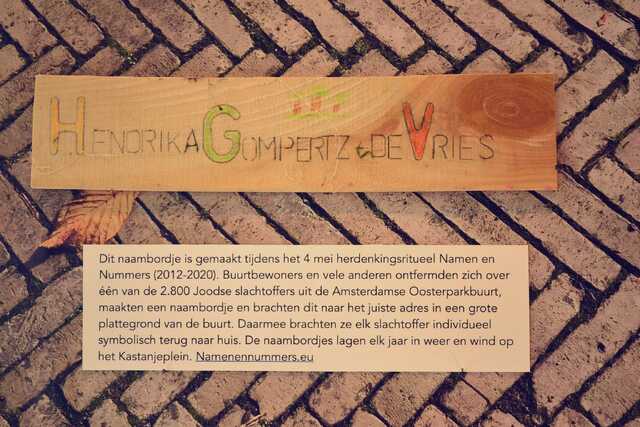 HENDRIKA GOMPERTZ-DE VRIES
Dit naambordje is gemaakt tijdens het 4 mei herdenkingsritueel Namen en
Nummers (2012-2020). Buurtbewoners en vele anderen ontfermden zich over
één van de 2.800 Joodse slachtoffers uit de Amsterdamse Oosterparkbuurt,
maakten een naambordje en brachten dit naar het juiste adres in een grote
plattegrond van de buurt. Daarmee brachten ze elk slachtoffer individueel
symbolisch terug naar huis. De naambordjes lagen elk jaar in weer en wind op
het Kastanjeplein. Namenennummers.eu